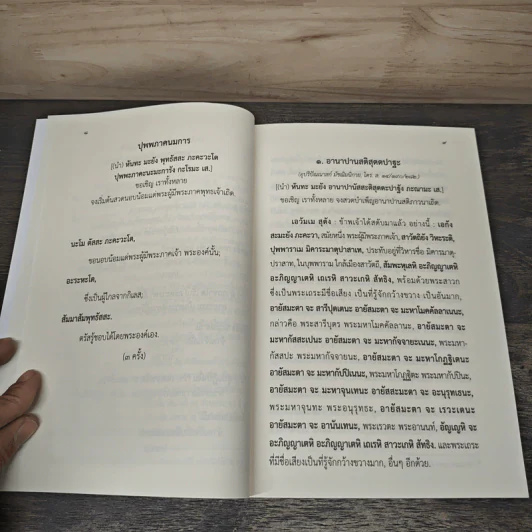 ปุพพภาคนมการ
[(นำ) หันทะ มะยัง พุทธัสสะ ภะคะวะโต
ปุพพะภาคะนะมะการัง กะโรมะ เส.]
ขอเชิญ เราทั้งหลาย
จงเริ่มต้นสวดนอบน้อมแด่พระผู้มีพระภาคพุทธเจ้าเถิด.
นะโม ตัสสะ ภะคะวะโต,
ขอนอบน้อมแด่พระผู้มีพระภาคเจ้า พระองค์นั้น;
อะระหะโต,
ซึ่งเป็นผู้ไกลจากกิเลส;
สัมมาสัมพุทธัสสะ.
ตรัสรู้ชอบได้โดยพระองค์เอง.
(๓ ครั้ง)
๑. อานาปานสติสุตตปาฐะ
(อุปริปัณณาสก์
[(นำ) หันทะ มะยัง อานาปานัสสะติสุตตะปาฐัง ภะณามะ เส.]
ขอเชิญ เราทั้งหลาย จงสวดบำเพ็ญอานาปานสติภาวนาเถิด.
เอวัมเม สุตัง : ข้าพเจ้าได้สดับมาแล้ว อย่างนี้ ; เอกัง
สะมะยัง ภะคะวา, สมัยหนึ่ง พระผู้มีพระภาคเจ้า, สาวัตถิยัง วิหะระติ,
ปุพพาราเม มิคาระมาตุปาสาเท, ประทับอยู่ที่วิหารชื่อ มิคารมาตุ-
ปราสาท, ในบุพพาราม ใกล้เมืองสาวัตถี, สัมพะหุเลหิ อะภิญญาเตหิ
อะภิญญาเตหิ เถเรหิ สาวะเกหิ สัทธิง, พร้อมด้วยพระสาวก
ซึ่งเป็นพระเถระมีชื่อเสียง เป็นที่รู้จักกว้างขวาง เป็นอันมาก,
อายัสมะตา จะ สารีปุตเตนะ อายัสมะตา จะ มะหาโมคคัลลาเนนะ,
กล่าวคือ พระสารีบุตร พระมหาโมคคัลลานะ, อายัสมะตา จะ
มะหากัสสะเปนะ อายัสมะตา จะ มะหากัจจายะเนนะ, พระมหา-
กัสสปะ พระมหากัจจายนะ, อายัสมะตา จะ มะหาโกฏฐิเตนะ
อายัสมะตา จะ มะหากัปปิเนนะ, พระมหาโกฏฐิตะ พระมหากัปปินะ,
อายัสมะตา จะ มะหาจุนเทนะ อายัสมะตา จะ อะนุรุทเธนะ,
พระมหาจุนทะ พระอนุรุทธะ, อายัสมะตา จะ เรวะเตนะ
อายัสมะตา จะ อานันเทนะ, พระเรวตะ พระอานนท์, อัญเญหิ จะ
อะภิญญาเตหิ อะภิญญาเตหิ เถเรหิ สาวะเกหิ สัทธิง. และพระเถระ
ที่มีชื่อเสียงเป็นที่รู้จักกว้างขวางมาก, อื่นๆ อีกด้วย.